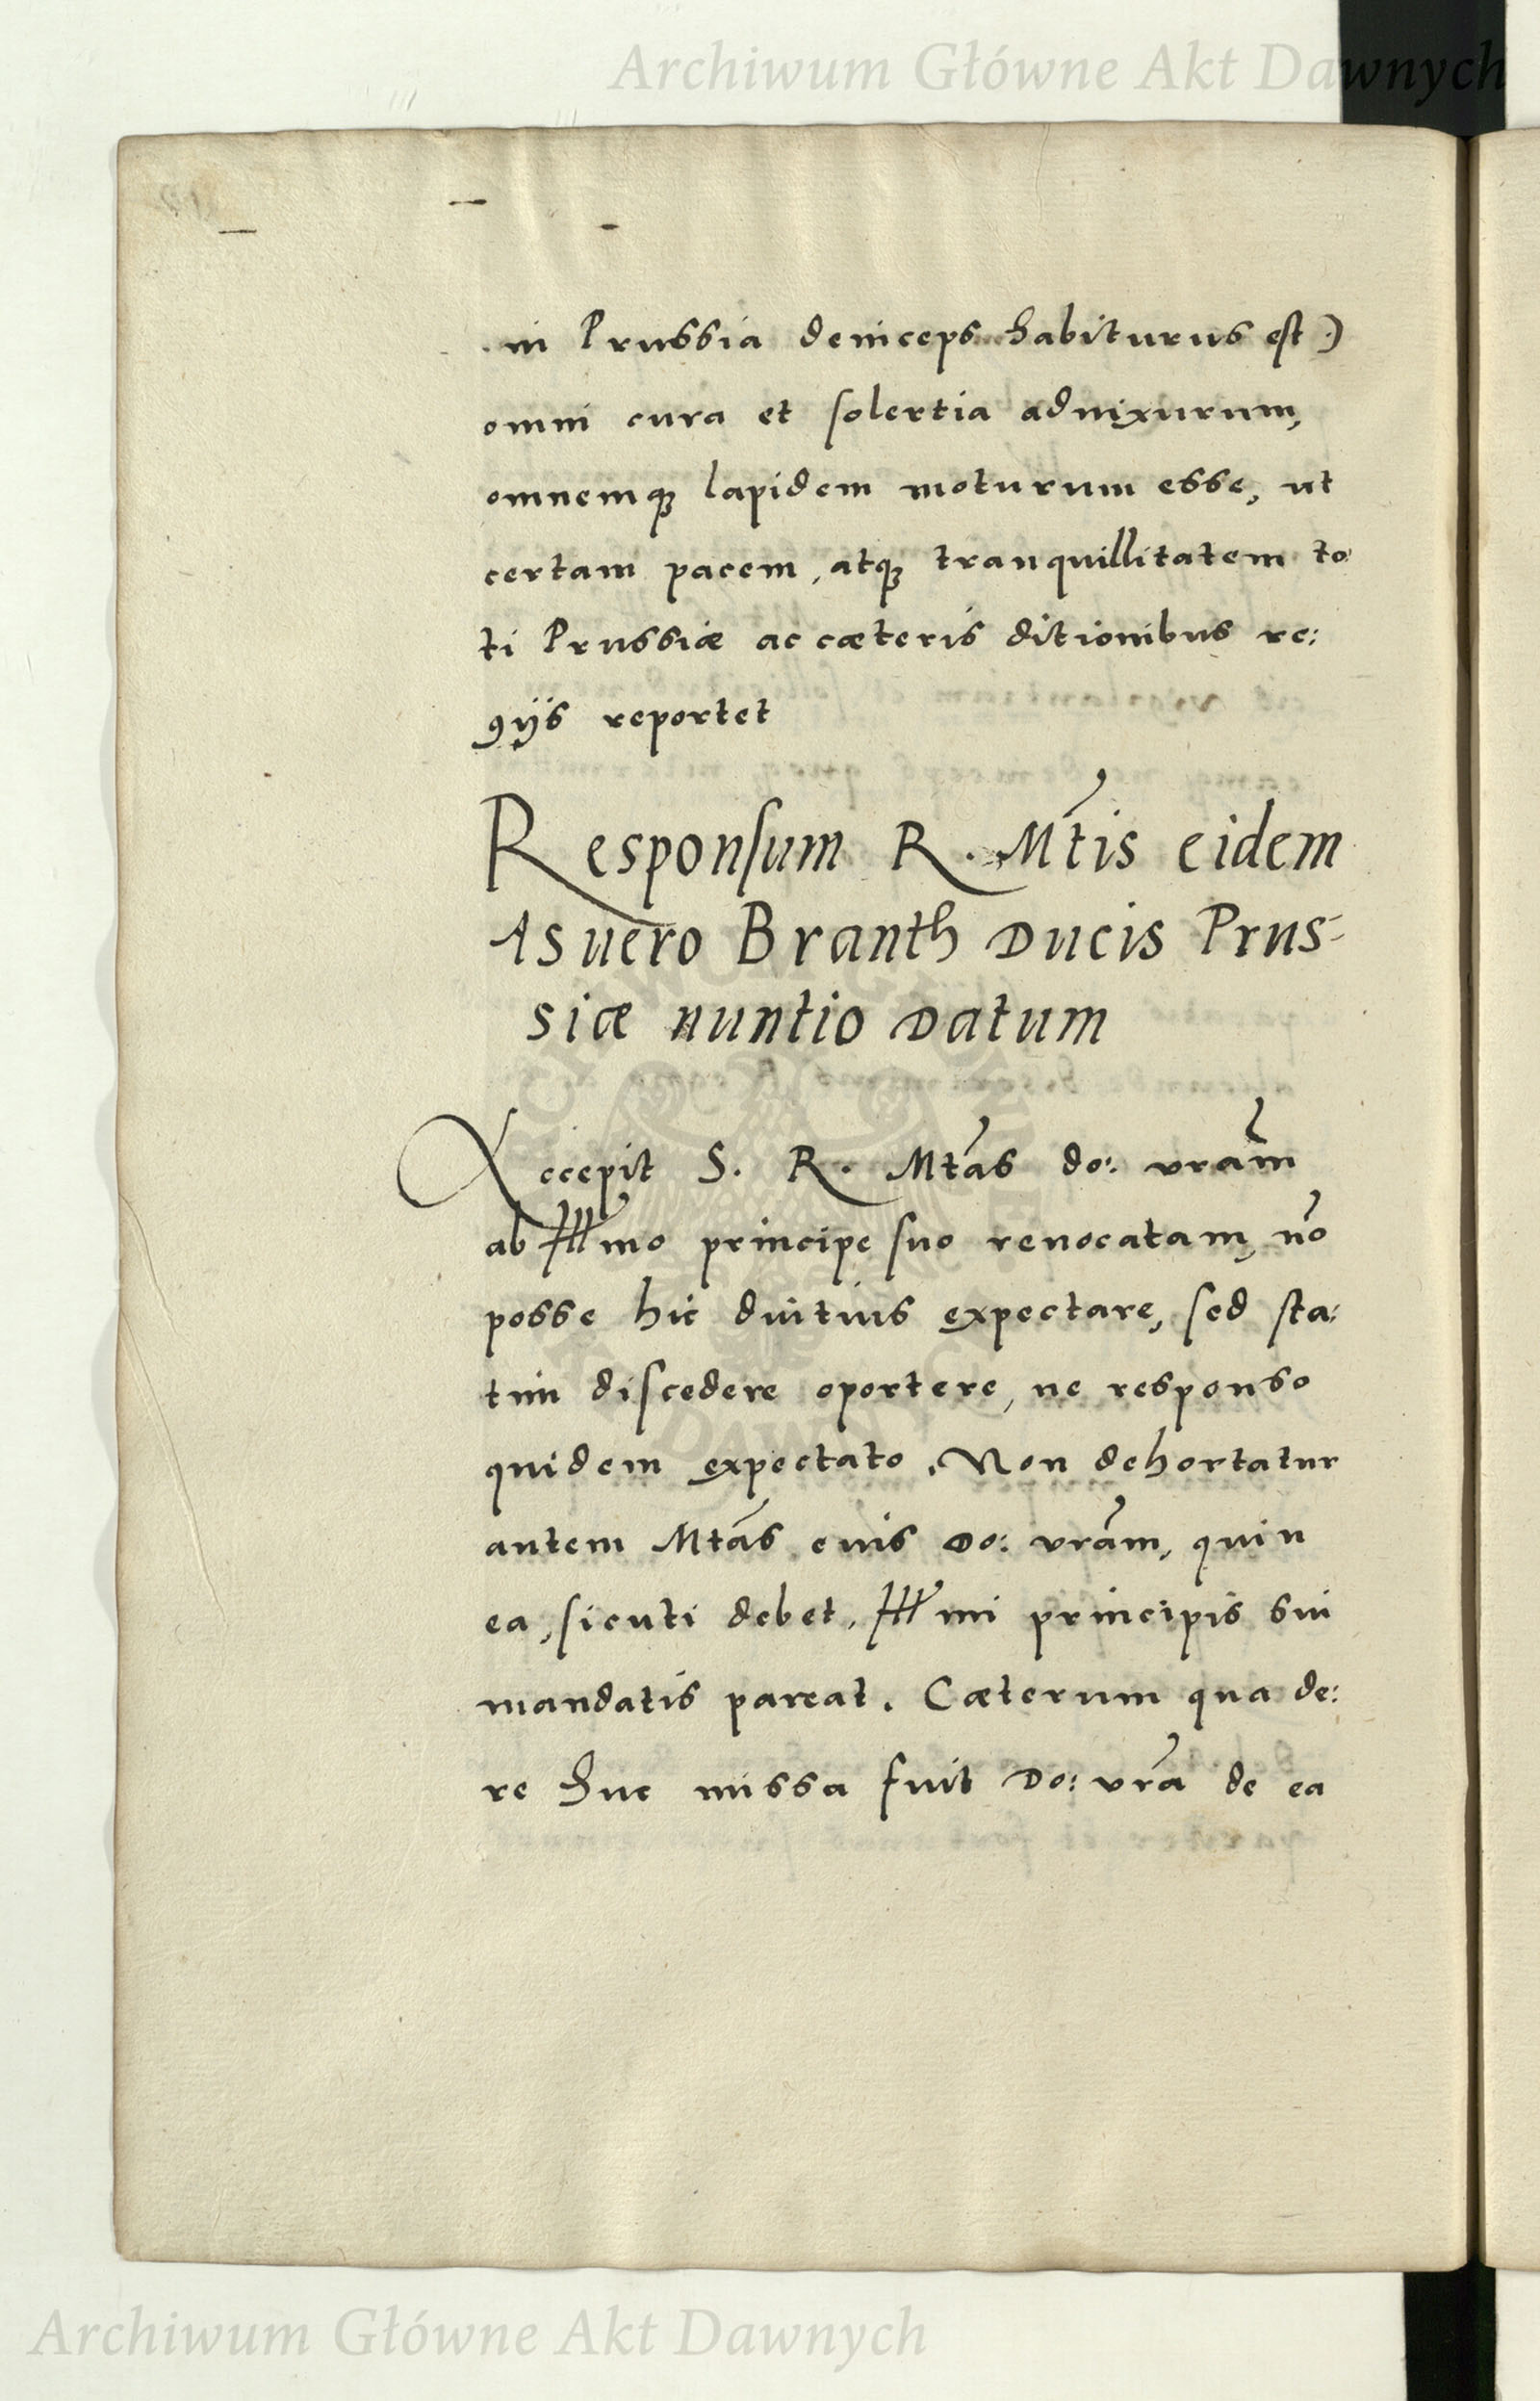 Archiwum Główne Akt Dawnych
in Prussia deinceps habiturus est)
omni cura et solertia adnixurum,
omnemq; lapidem moturum esse, ut
certam pacem, atq; tranquillitatem to
ti Prussiæ ac cæteris ditionibus re:
gijs reportet
Responsum R. Mtis eidem
Asuero Branth Ducis Prus-
siæ nuntio Datum
Accepit S. R. Mtas do: vram
ab Illmo principe suo revocatam, no
posse hic diutius expectare, sed sta:
tim discedere oportere, ne responso
quidem expectato. Non dehortatur
autem Mtas eius Do: vram, quin
ea, sicuti debet, Illmi principis sui
mandatis pareat. Cæterum qua de:
re huc missa fuit Do: vra de ea
Archiwum Główne Akt Dawnych